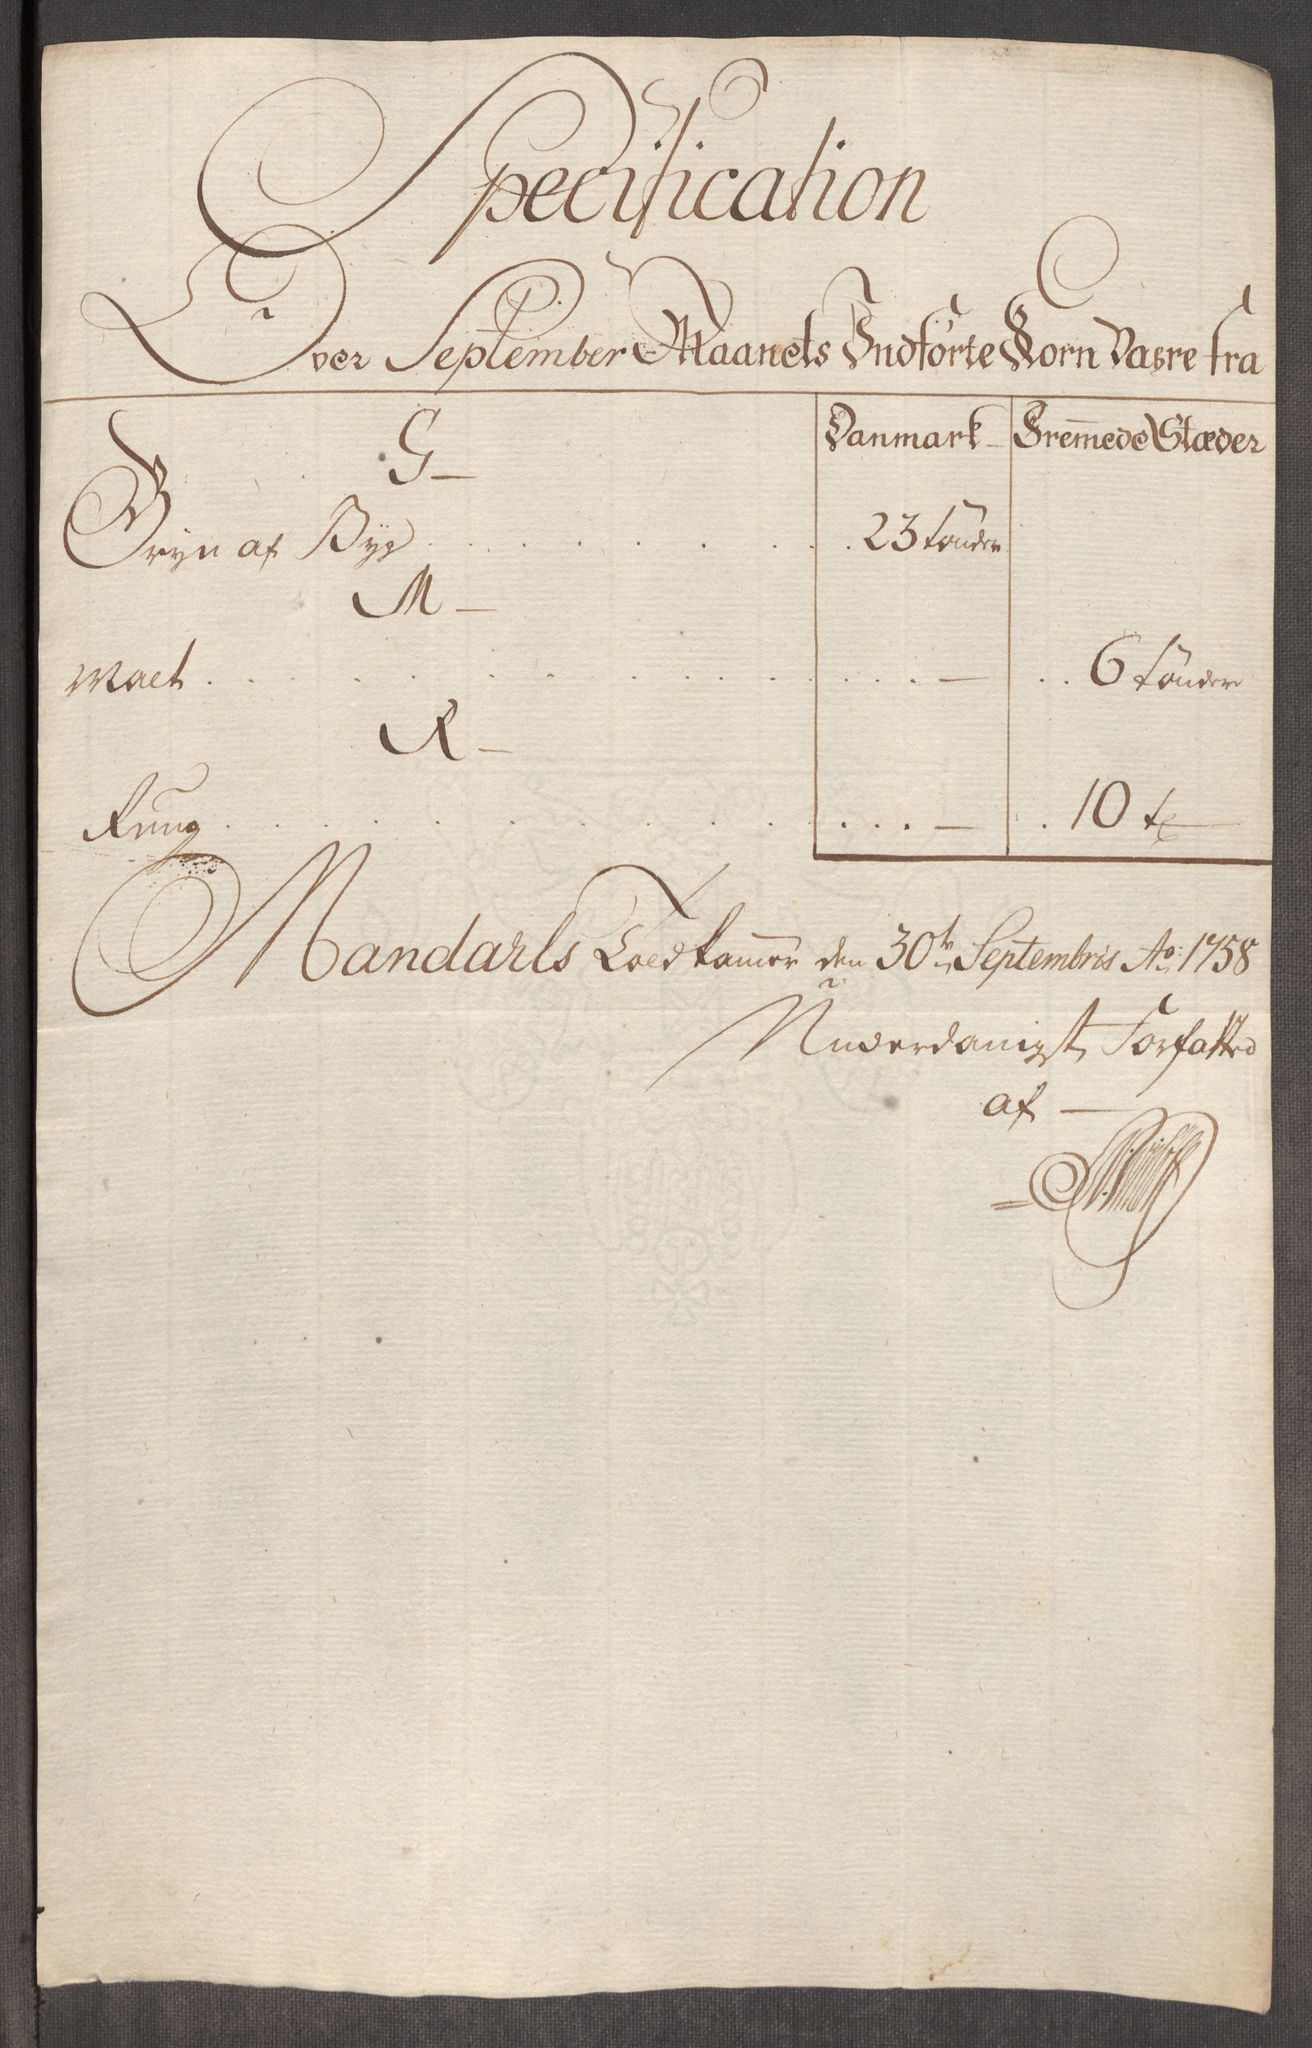 Specification
Over September Maanets Indförte Korn Vahre fra
Danmark - Fremede Stæder
G -
Gryn af Byg . . . . . . . . 23 tönder
M -
Malt . . . . . . . . . . . . . — . . 6 tönder
R -
Rung . . . . . . . . . . . . . — . 10 t
Mandahls Toldkamer den 30te Septembris Ao: 1758
Underdanigst Forfatted
af —